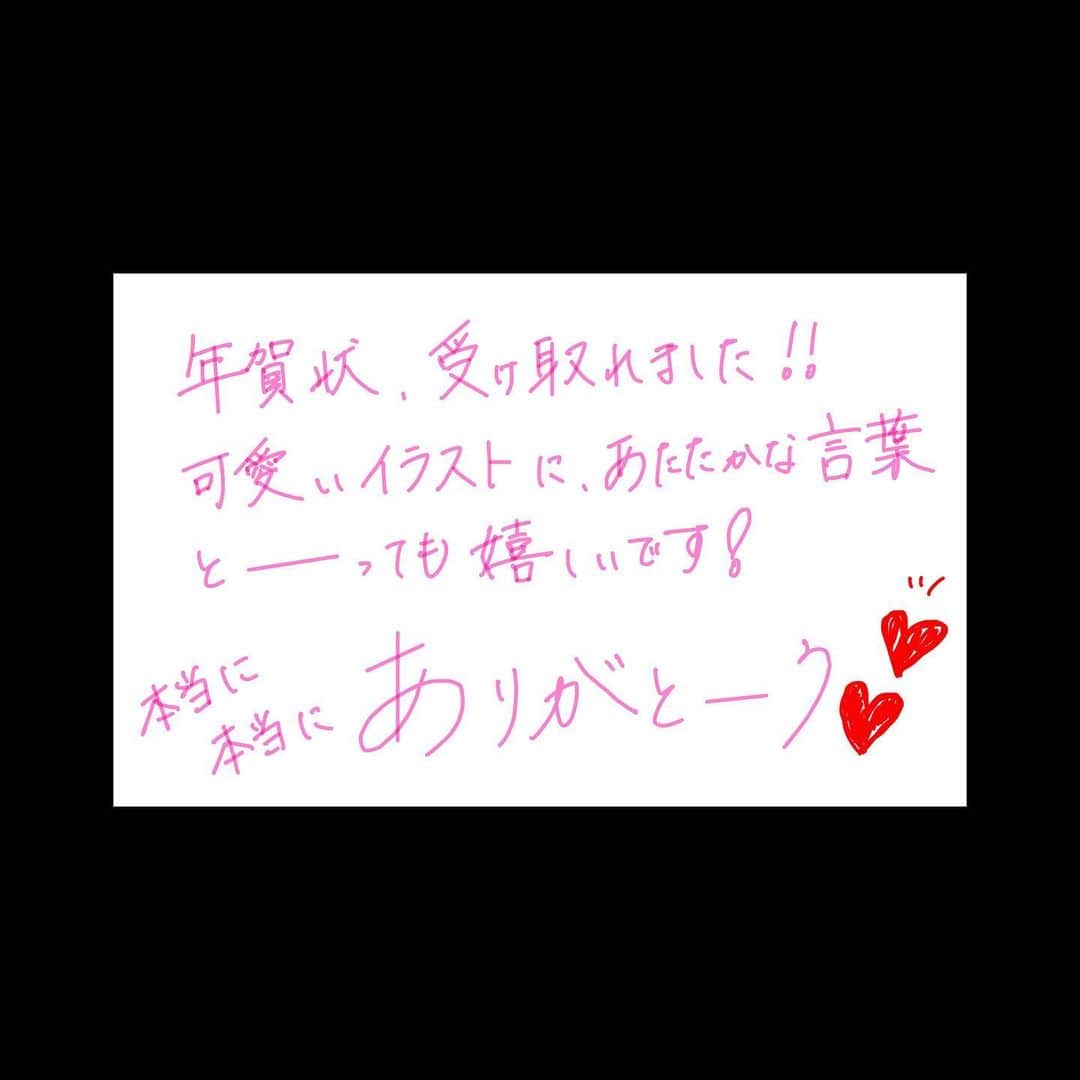 年賀状、受け取れました!!
可愛いイラストに、あたたかな言葉
と――っても嬉しいです!
本当に
本当に ありがとーう